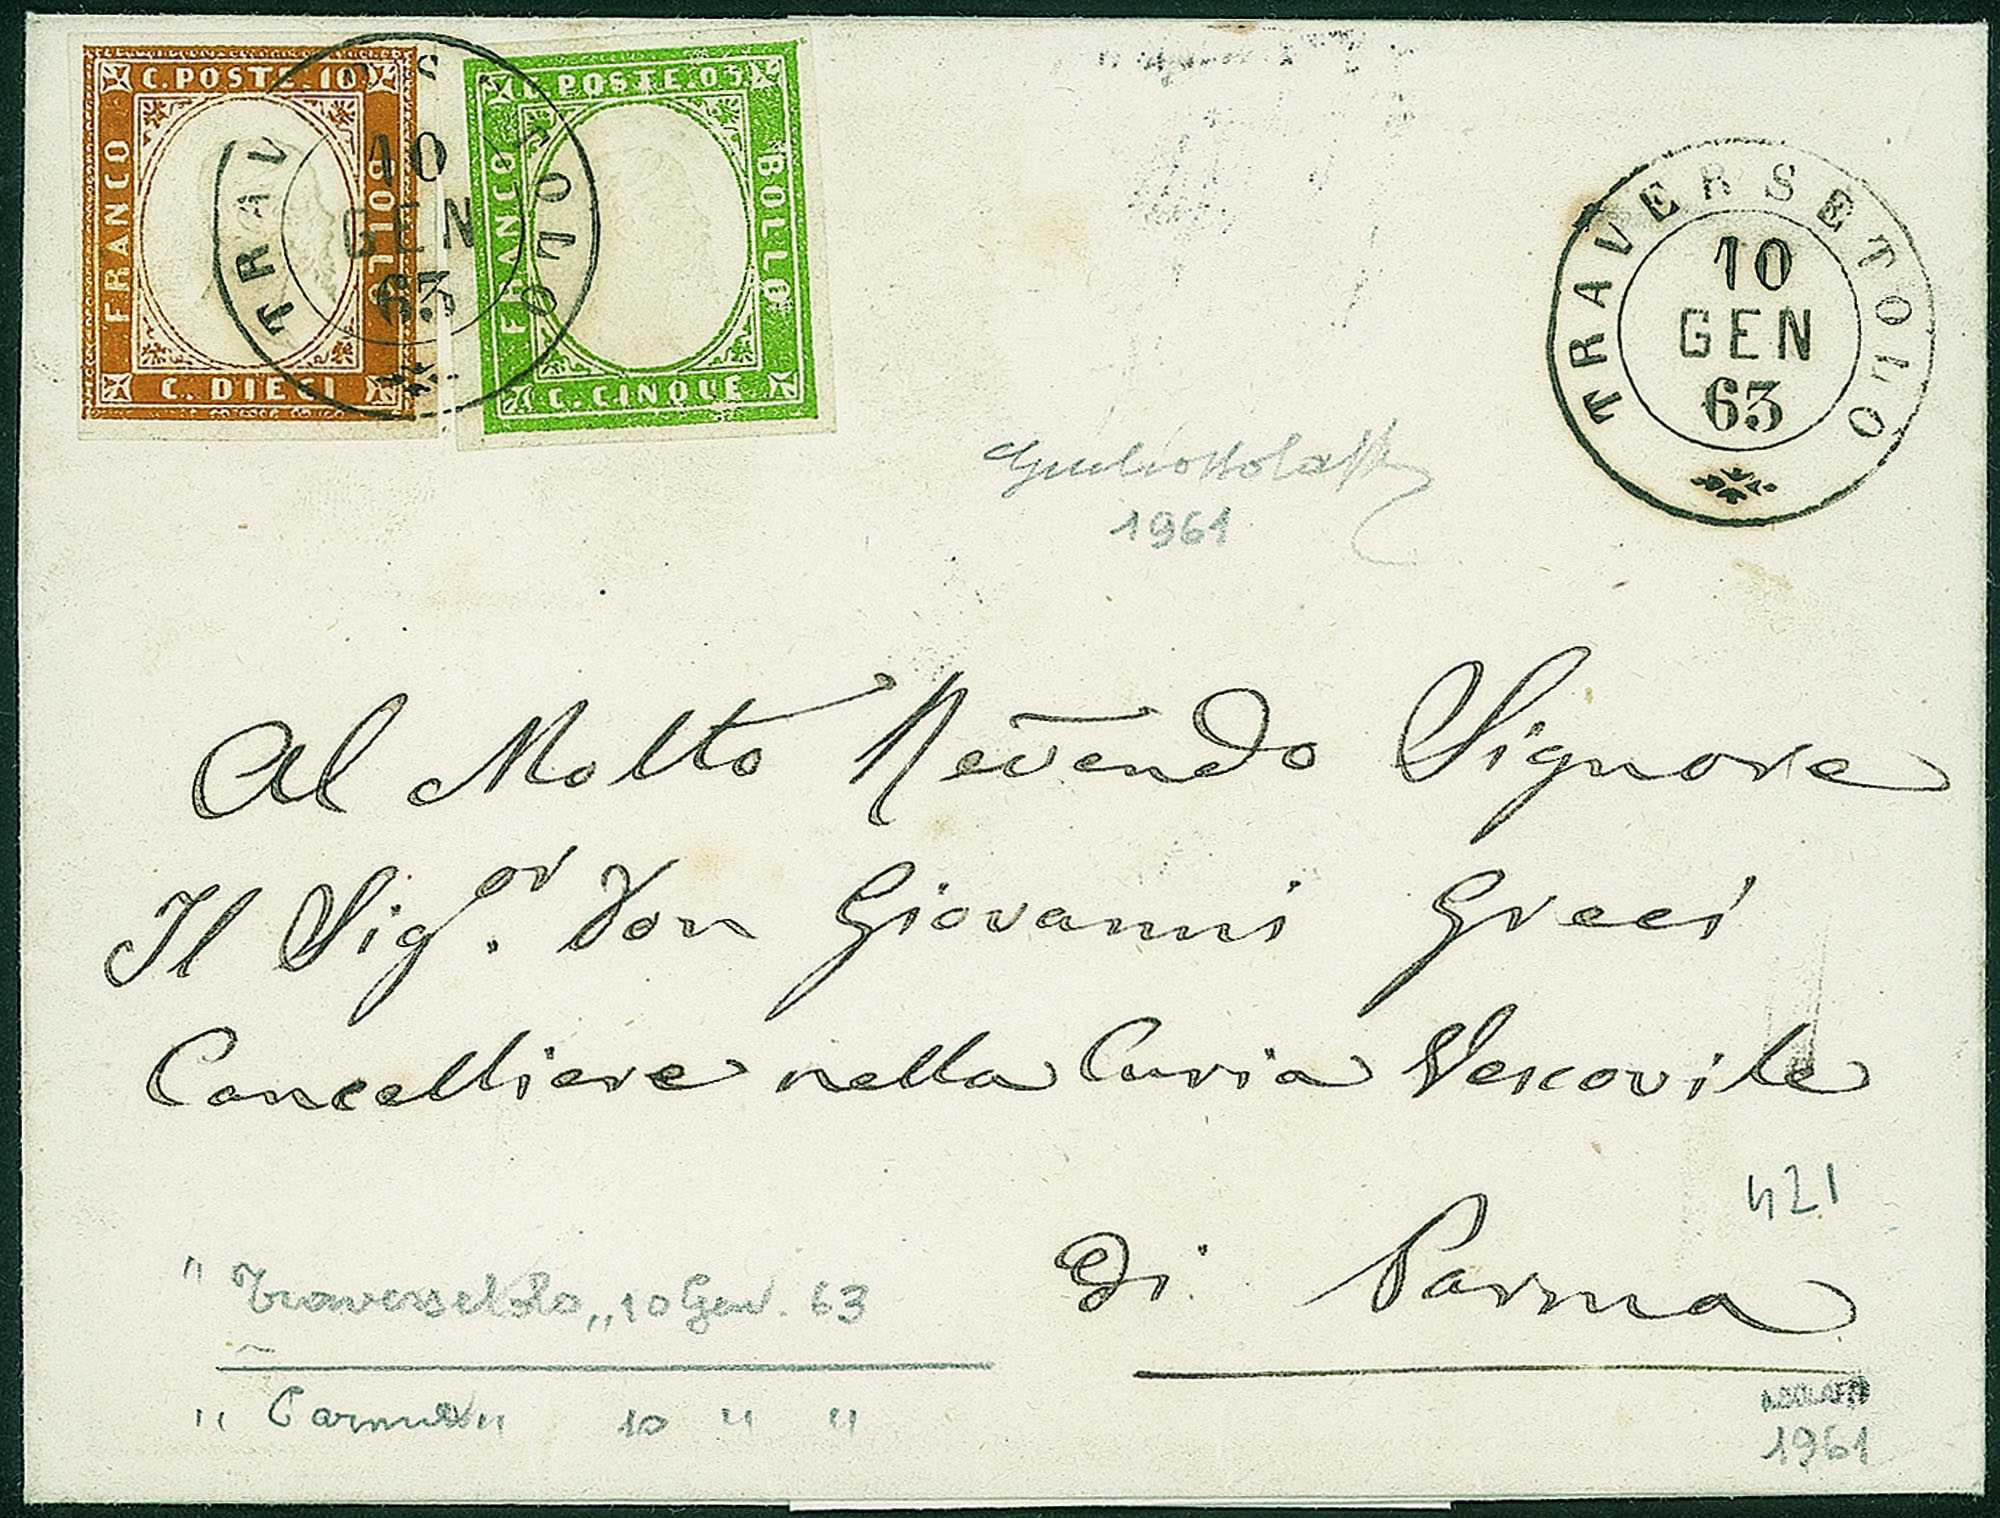 C. POSTE. 10
FRANCO
BOLLO
C. DIECI
C. POSTE. 05
FRANCO
BOLLO
C. CINQUE
TRAV RS TOLO
10
GEN
63
TRAVERSETOLO
10
GEN
63
1961
Al Molto Revendo Signore
Il Sigor. Don Giovanni Greci
Cancelliere nella Curia Vescovile
di Parma
421
"Traversetolo" 10 Gen. 63
"Parma" 10 " "
1961